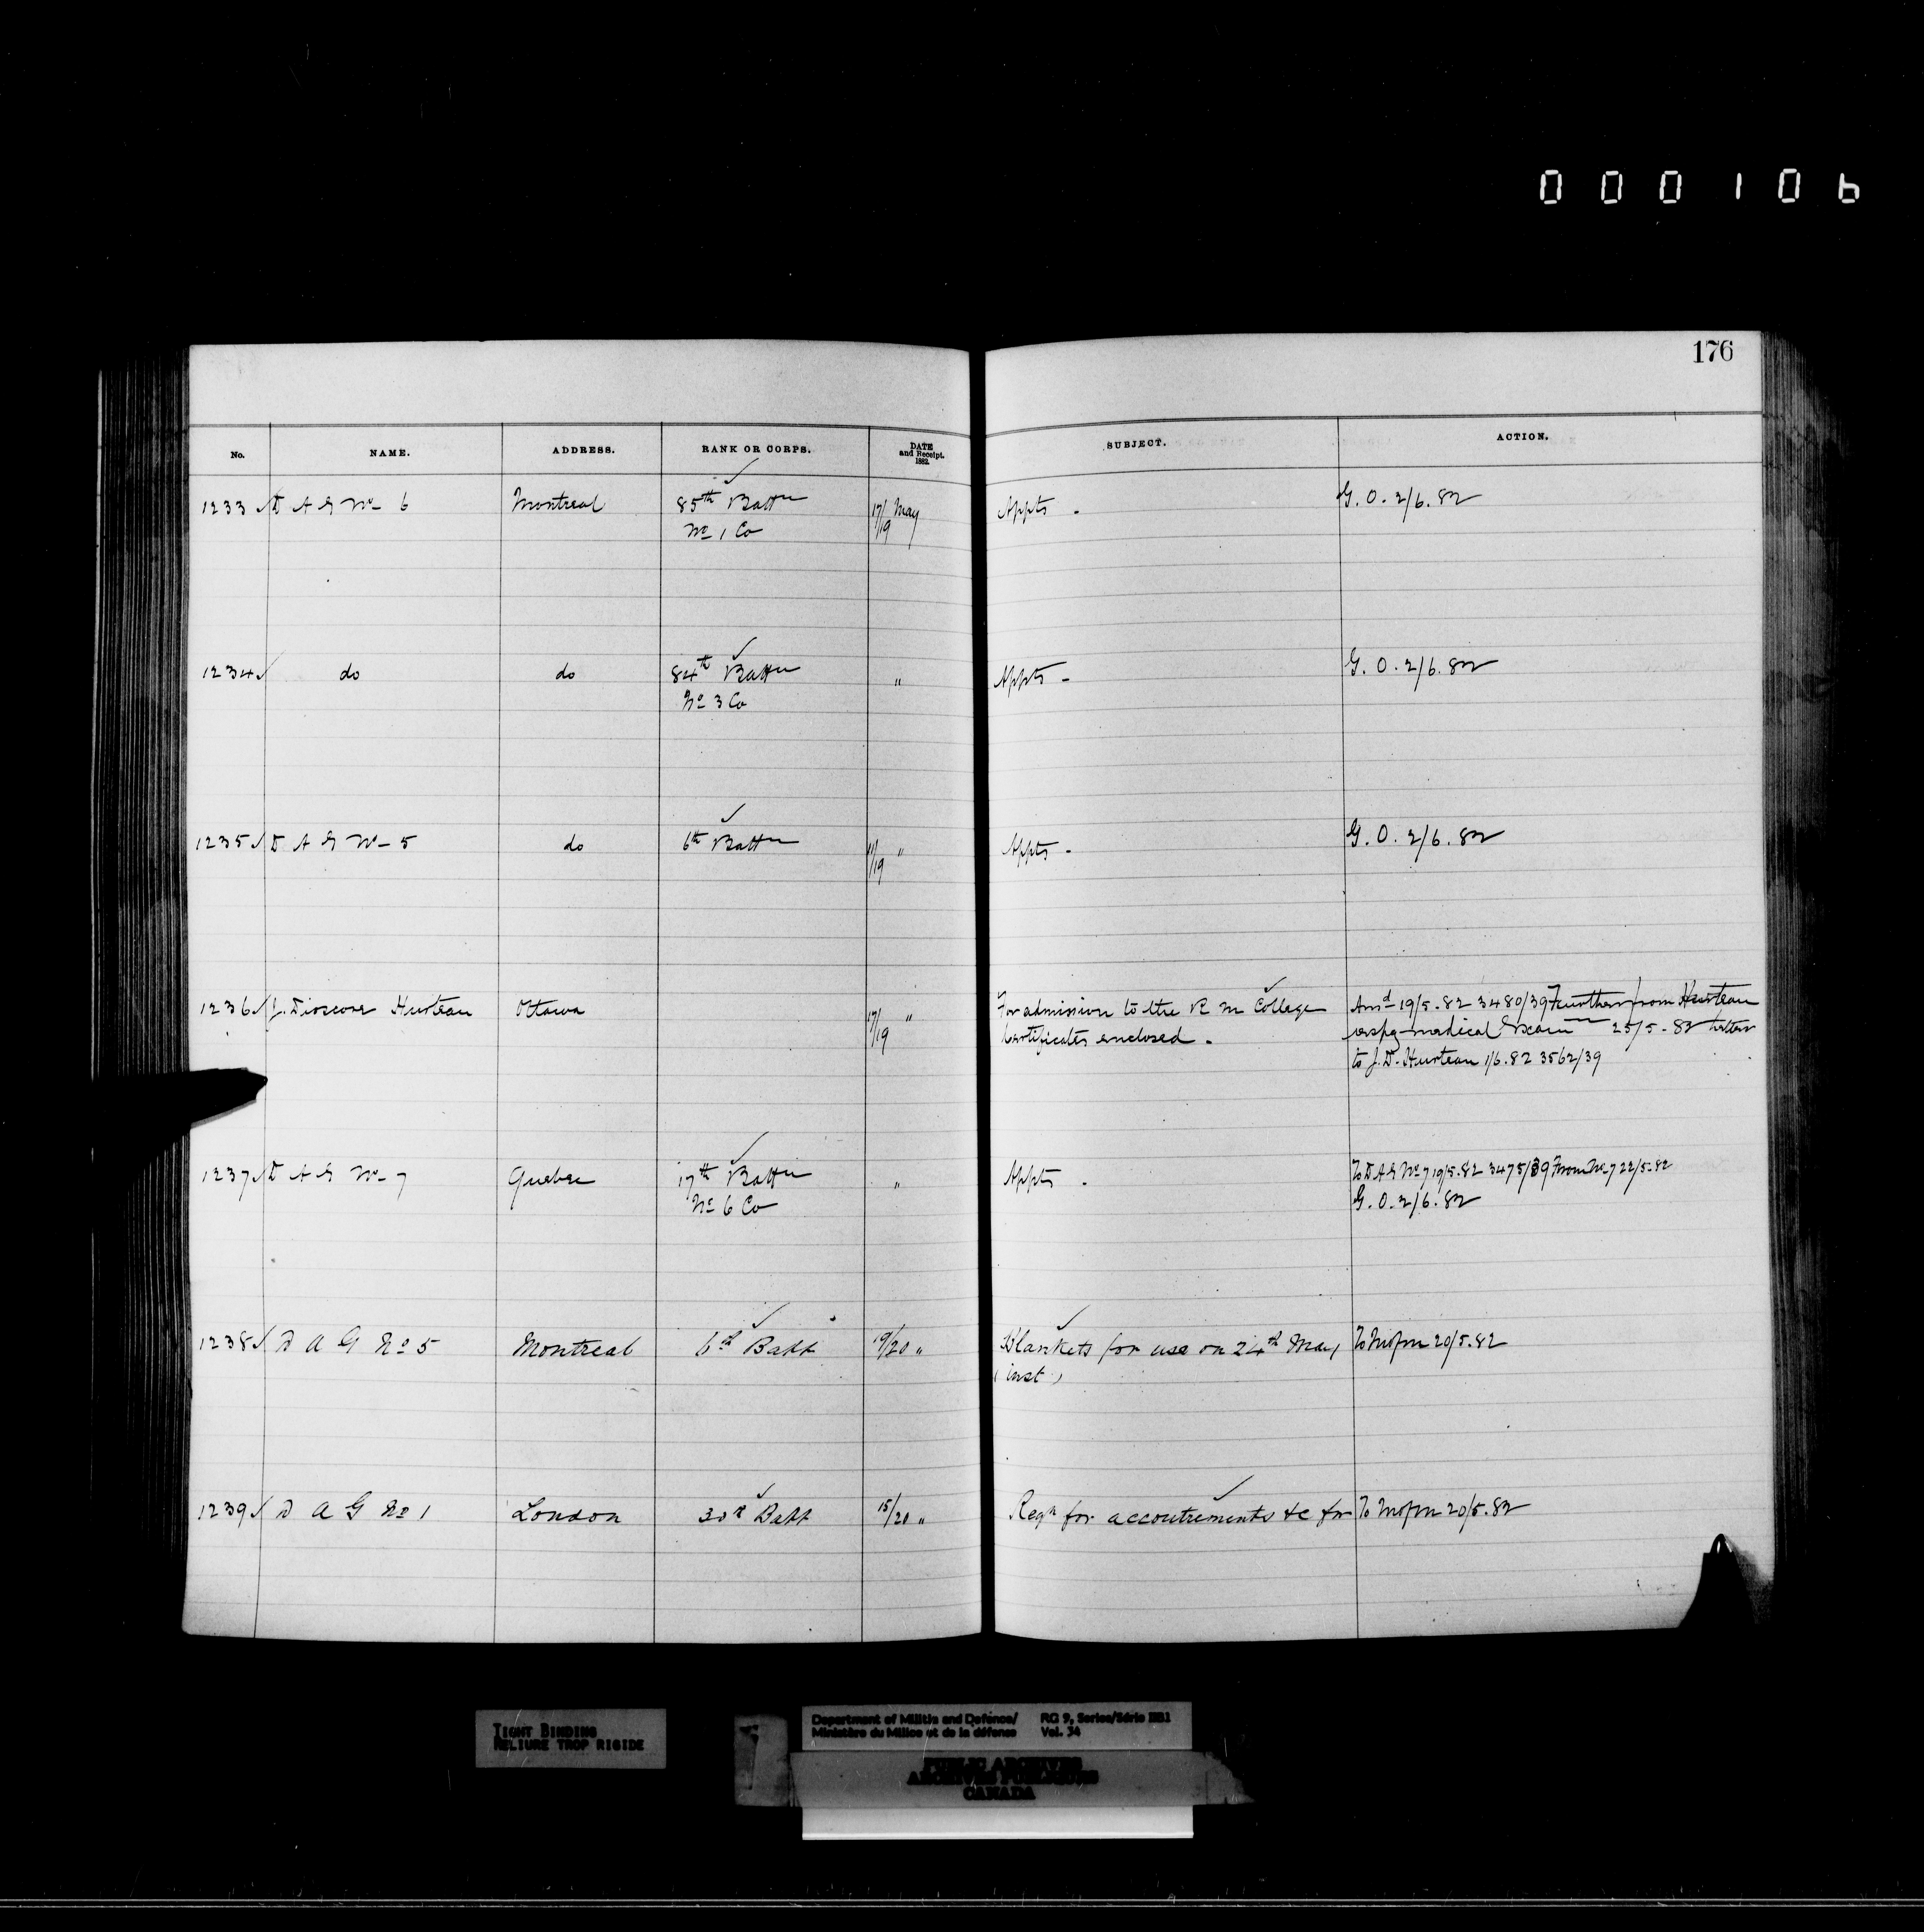 000106
176
No. NAME. ADDRESS. RANK OR CORPS. DATE and Receipt. 1882. SUBJECT. ACTION.
1233 ✓ D A G No 6 Montreal 85th Battn 17/19 May Appts - G. O. 2/6.82
No 1 Co
1234 ✓ do do 84th Battn " Appts - G. O. 2/6.82
No 3 Co
1235 ✓ D A G No 5 do 6th Battn /19 " Appts - G. O. 2/6.82
1236 ✓ J. Dioscore Hurteau Ottawa 17/19 " For admission to the R M College Ansd 19/5.82 3480/39 Further from Hurteau
Certificates enclosed. respg medical Exam 25/5-82 letter
to J.D. Hurteau 1/6.82 3562/39
1237 ✓ D A G No 7 Quebec 17th Battn " Appts - To D A G No 7 19/5.82 3475/39 From No 7 22/5.82
No 6 Co G. O. 2/6.82
1238 ✓ D A G No 5 Montreal 6th Batt 19/20 " Blankets for use on 24th May 20/5.82
(inst)
1239 ✓ D A G No 1 London 30th Batt 15/20 " Reqn for accoutrements &c for 20/5.82
TIGHT BINDING
RELIURE TROP RIGIDE
Department of Militia and Defence/ RG 9, Series/Série IIB1
Ministère du Milice et de la défense Vol. 34
PUBLIC ARCHIVES
ARCHIVES PUBLIQUES
CANADA